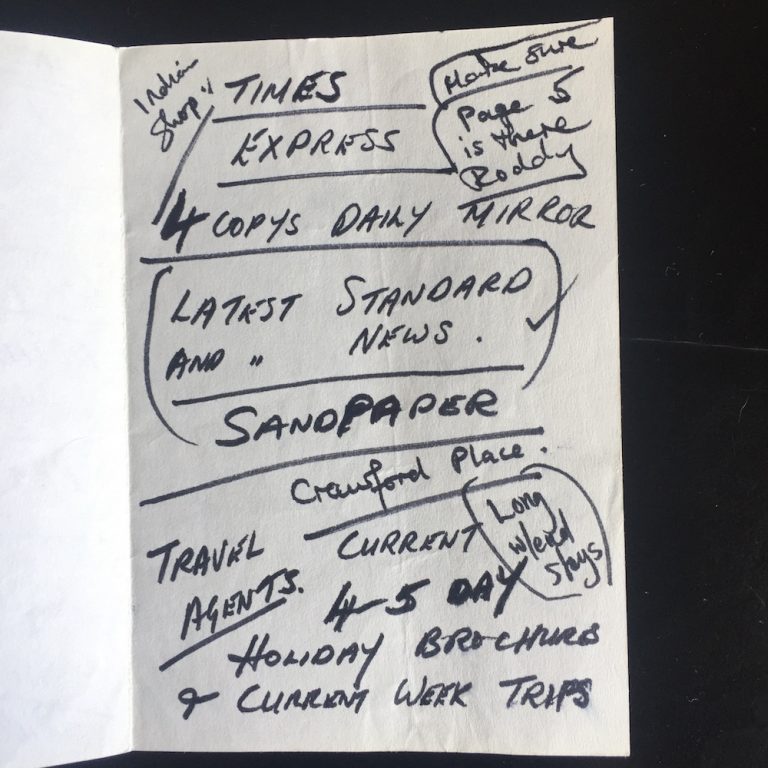 Indian
Shop "
TIMES
Make sure
Page 5
is there
Roddy
EXPRESS
4 COPYS DAILY MIRROR
LATEST STANDARD
AND " NEWS.
SANDPAPER
Crawford Place.
TRAVEL CURRENT
AGENTS. 4-5 DAY
Long
w/end
stays
HOLIDAY BROCHURES
& CURRENT WEEK TRIPS